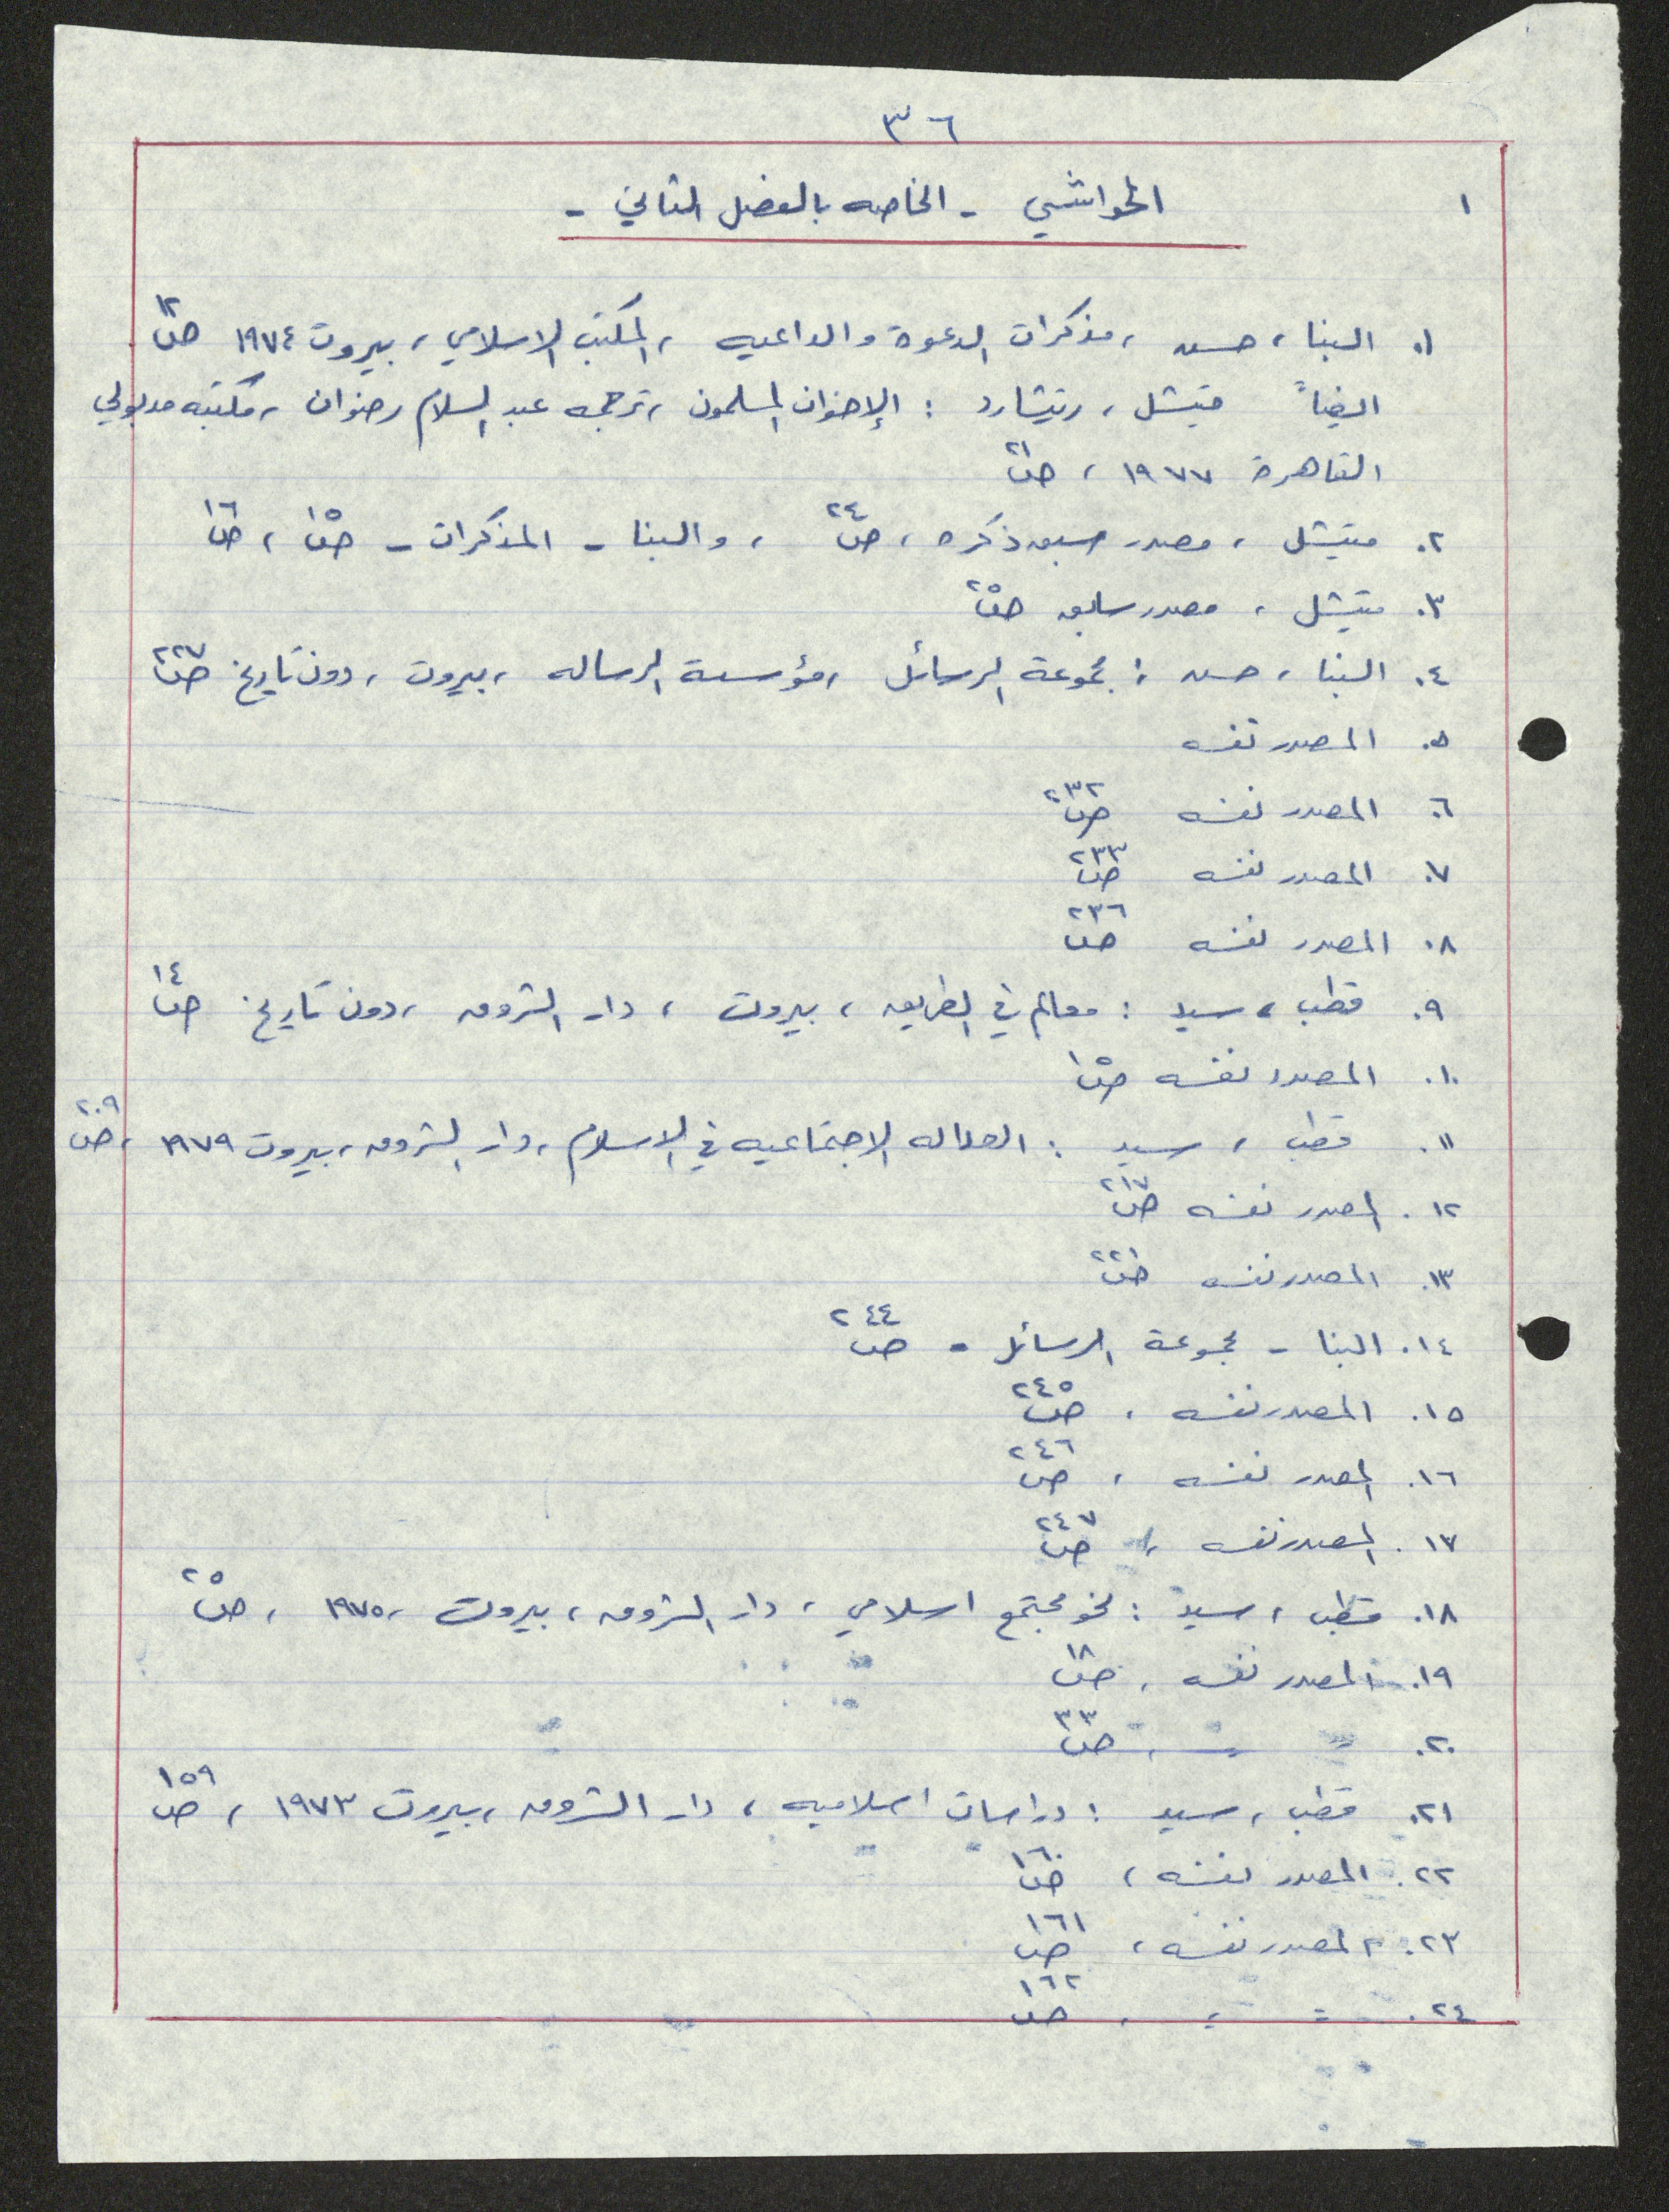 ٣٦
١
الحواشي - الخاصه بالفصل الثاني -
١. البنا، حسن، مذكرات الدعوة والداعيه، المكتب الاسلامي، بيروت ١٩٧٤ ص ١٢
ايضاً ميتشل، ريتشارد : الإخوان المسلمون، ترجمه عبد السلام رضوان، مكتبه مدبولي
القاهرة ١٩٧٧، ص ٢١
٢. ميتشل، مصدر سبق ذكره، ص ٢٤، والبنا - المذكرات - ص ١٥، ص ١٦
٣. ميتشل، مصدر سابق ص ٢٥
٤. البنا، حسن : مجموعة الرسائل، مؤسسة الرساله، بيروت، دون تاريخ ص ٢٢٧
٥. المصدر نفسه
٦. المصدر نفسه ص ٢٣٢
٧. المصدر نفسه ص ٢٣٣
٨. المصدر نفسه ص ٢٣٦
٩. قطب، سيد : معالم في الطريق، بيروت، دار الشروق، دون تاريخ ص ١٤
١٠. المصدر نفسه ص ١٥
١١. قطب، سيد : العداله الاجتماعيه في الاسلام، دار الشروق، بيروت ١٩٧٩، ص ٢٠٩
١٢. المصدر نفسه ص ٢١٧
١٣. المصدر نفسه ص ٢٢١
١٤. البنا - مجموعة الرسائل - ص ٢٤٤
١٥. المصدر نفسه، ص ٢٤٥
١٦. المصدر نفسه، ص ٢٤٦
١٧. المصدر نفسه، ص ٢٤٧
١٨. قطب، سيد : نحو مجتمع اسلامي، دار الشروق، بيروت، ١٩٧٥، ص ٢٥
١٩. المصدر نفسه، ص ١٨
٢٠. = =، ص ٣٣
٢١. قطب، سيد : دراسات اسلاميه، دار الشروق، بيروت ١٩٧٣، ص ١٥٩
٢٢. المصدر نفسه، ص ١٦٠
٢٣. المصدر نفسه، ص ١٦١
٢٤. = =، ص ١٦٢